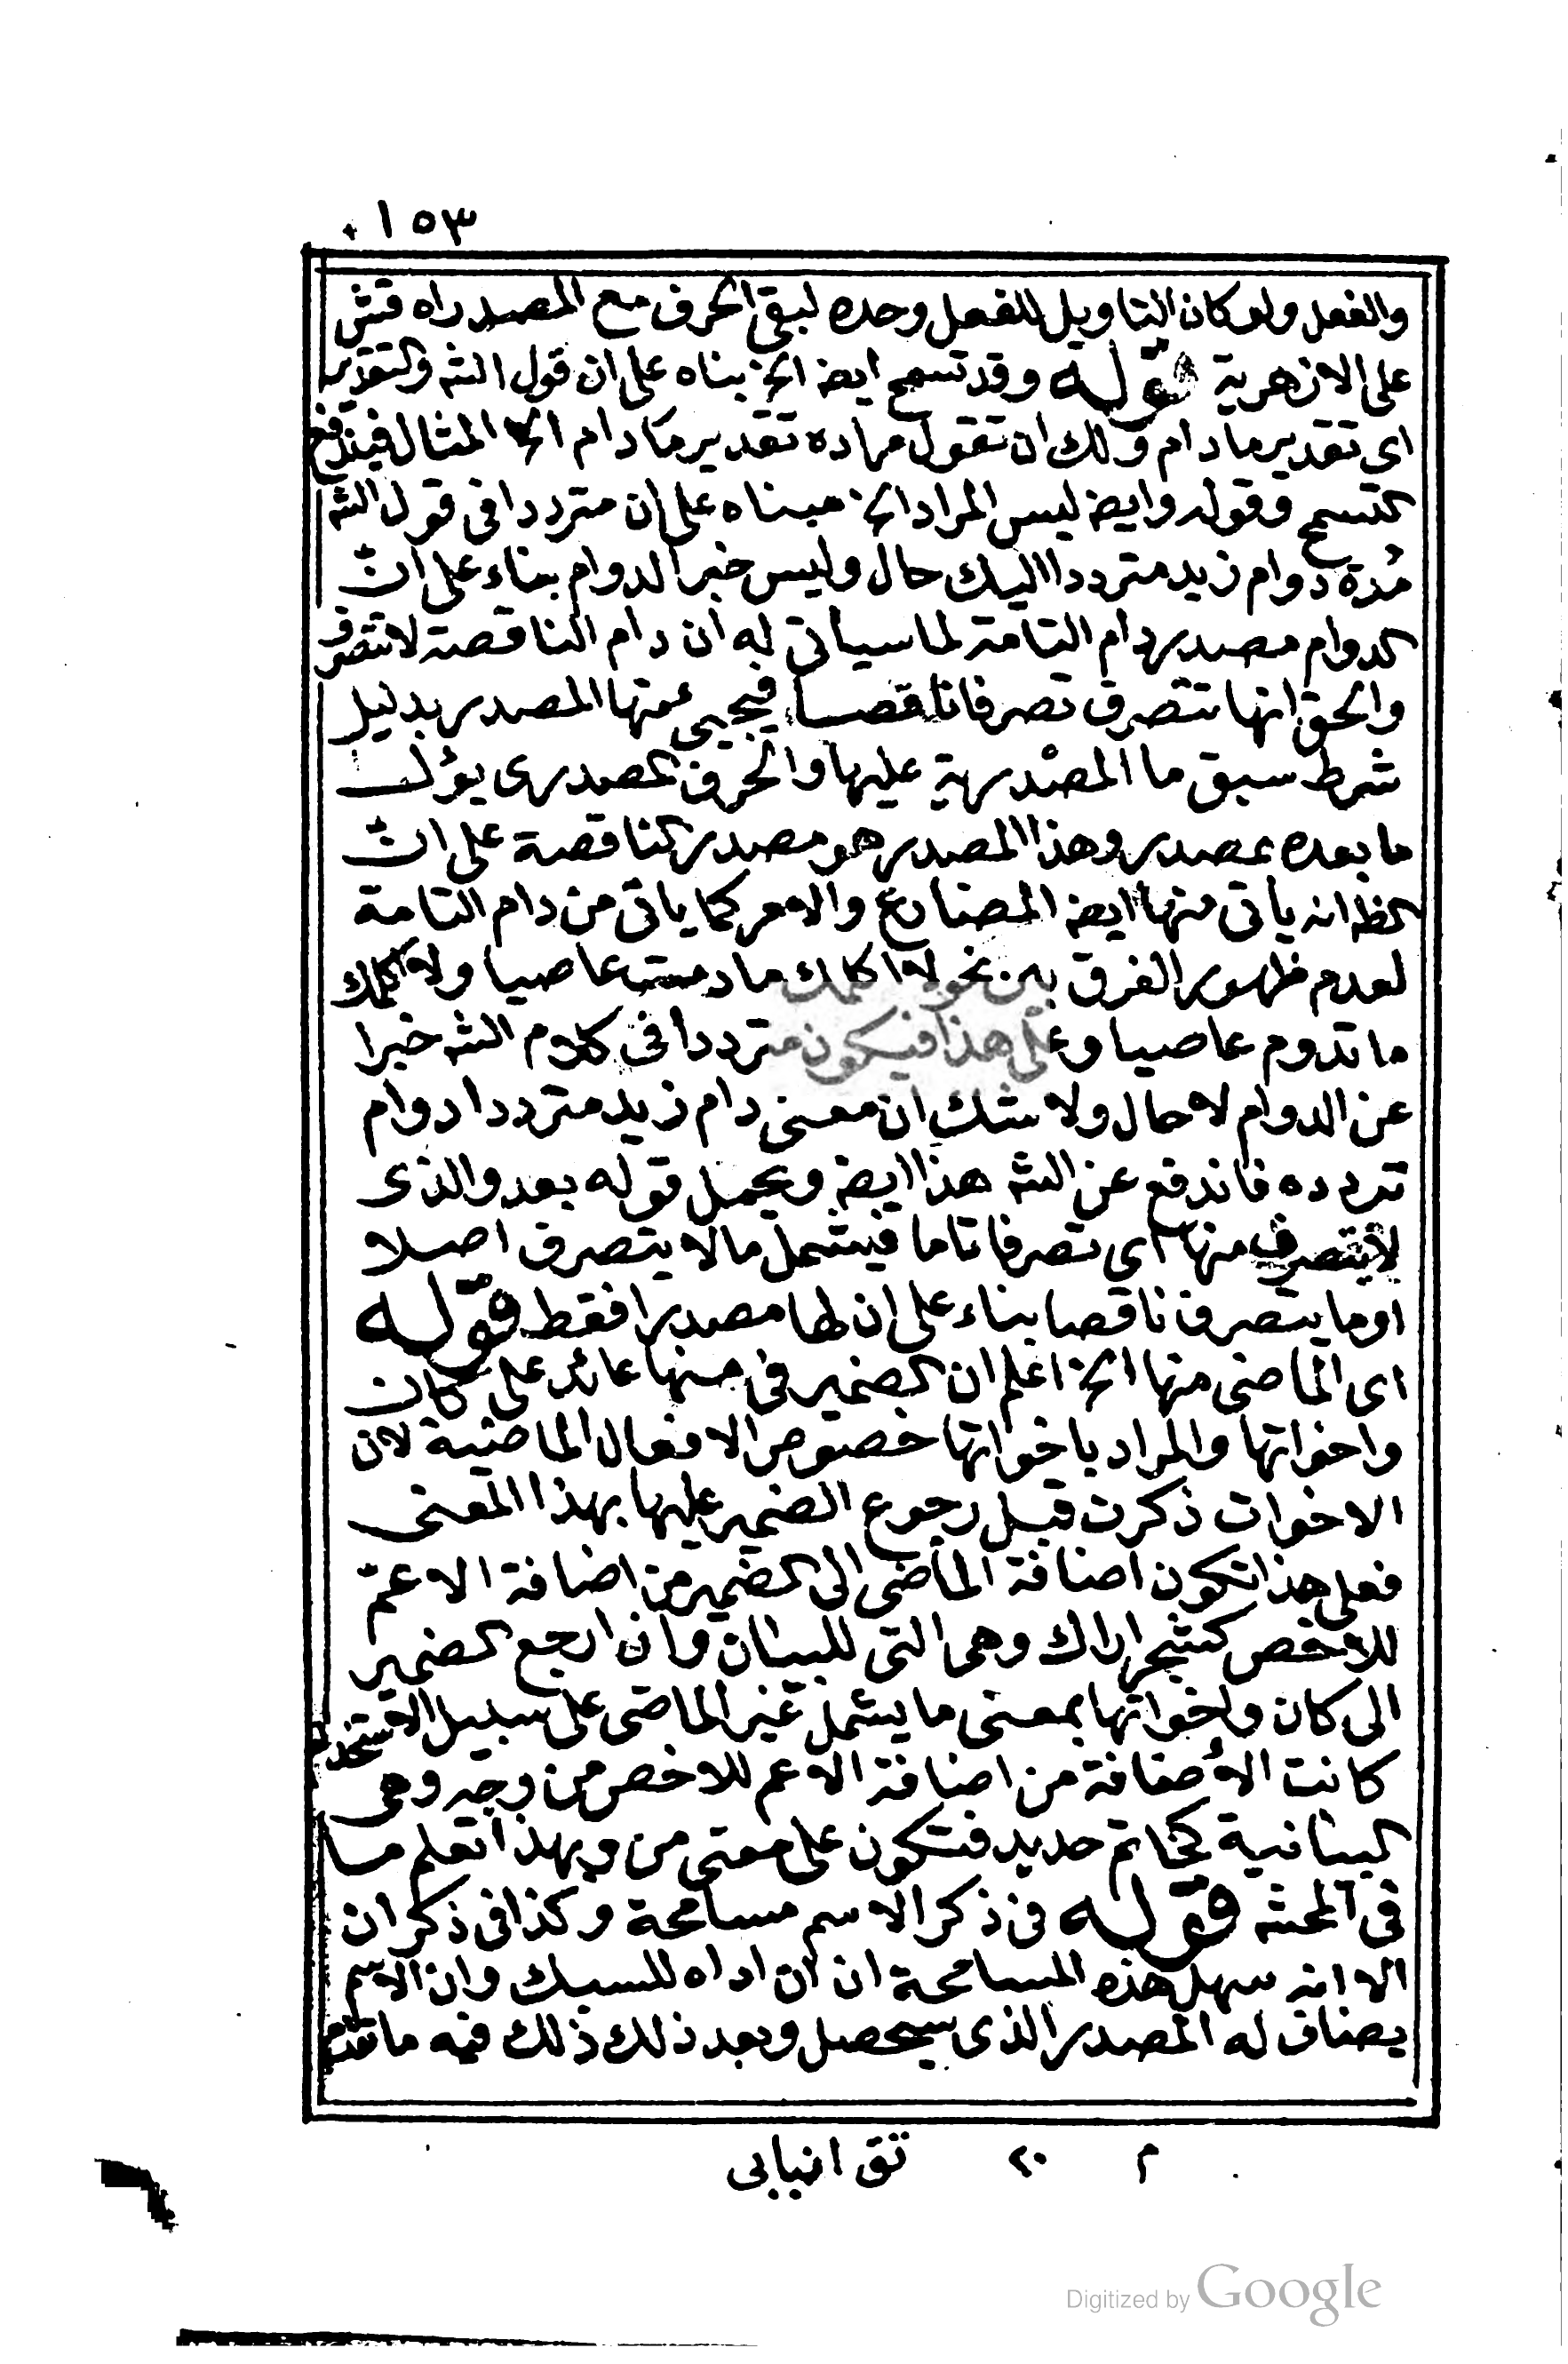 ١٥٣
والفعل ولو كان التاويل للفعل وحده لبقى الحرف مع المصدر اه قش
على الازهرية قوله وقد تسمح ايضہ الخ بناه على ان قول الشہ والتقدير
اى تقدير ما دام ولك ان تقول مراده تقدير ما دام الخ المثال فيندفع
التسمح وقوله وايضہ ليس المراد الخ مبناه على ان مترددا فى قول الشہ
مُدة دوام زيد مترددا اليك حال وليس خبر الدوام بناء على انّ
الدوام مصدر دام التامة لما سياتى له ان دام الناقصة لا تتصرف
والحق انها تتصرف تصرفا ناقصا فيجيى منها المصدر بدليل
شرط سبق ما المصْدرية عليها والحرف المصدرى يؤل
ما بعده بمصدر وهذا المصدر هو مصدر الناقصة على انّ
الظہ انه ياتى منها ايضہ المضارع والامر كما ياتى من دام التامة
لعدم ظهور الفرق بين نحو لا اكلمك ما دمت عاصيا ولا اكلمك
ما تدوم عاصيا وعلى هذا فيكون مترددا فى كلام الشہ خبرا
عن الدوام لا حال ولا شك ان معنى دام زيد مترددا دوام
تردده فاندفع عن الشہ هذا ايضہ ويحمل قوله بعد والذى
لا يتصرف منها اى تصرفا تاما فيشمل ما لا يتصرف اصلا
او ما يتصرف ناقصا بناء على ان لها مصدرا فقط قوله
اى الماضى منها الخ اعلم ان الضمير فى منها عائد على كان
واخواتها والمراد باخواتها خصوص الافعال الماضية لان
الاخوات ذكرت قبل رجوع الضمير عليها بهذا المعنى
فعلى هذا تكون اضافة الماضى الى الضمير من اضافة الاعمّ
للاخص كشجر اراك وهى التى للبيان وان ارجع الضمير
الى كان واخواتها بمعنى ما يشمل غير الماضى على سبيل الاستخدام
كانت الأضافة من اضافة الاعم للاخص من وجه وهى
البيانية كخاتم حديد فتكون على معنى من وبهذا تعلم ما
فى المحشہ قوله فى ذكر الاسم مسامحة وكذا فى ذكر ان
الا انه سهل هذه المسامحة ان ان اداه للسبك وان الاسم
يضاف له المصدر الذى سيحصل وبعد ذلك ذلك فيه ما تقدم
م ٢٠ تق انبابى
Digitized by Google